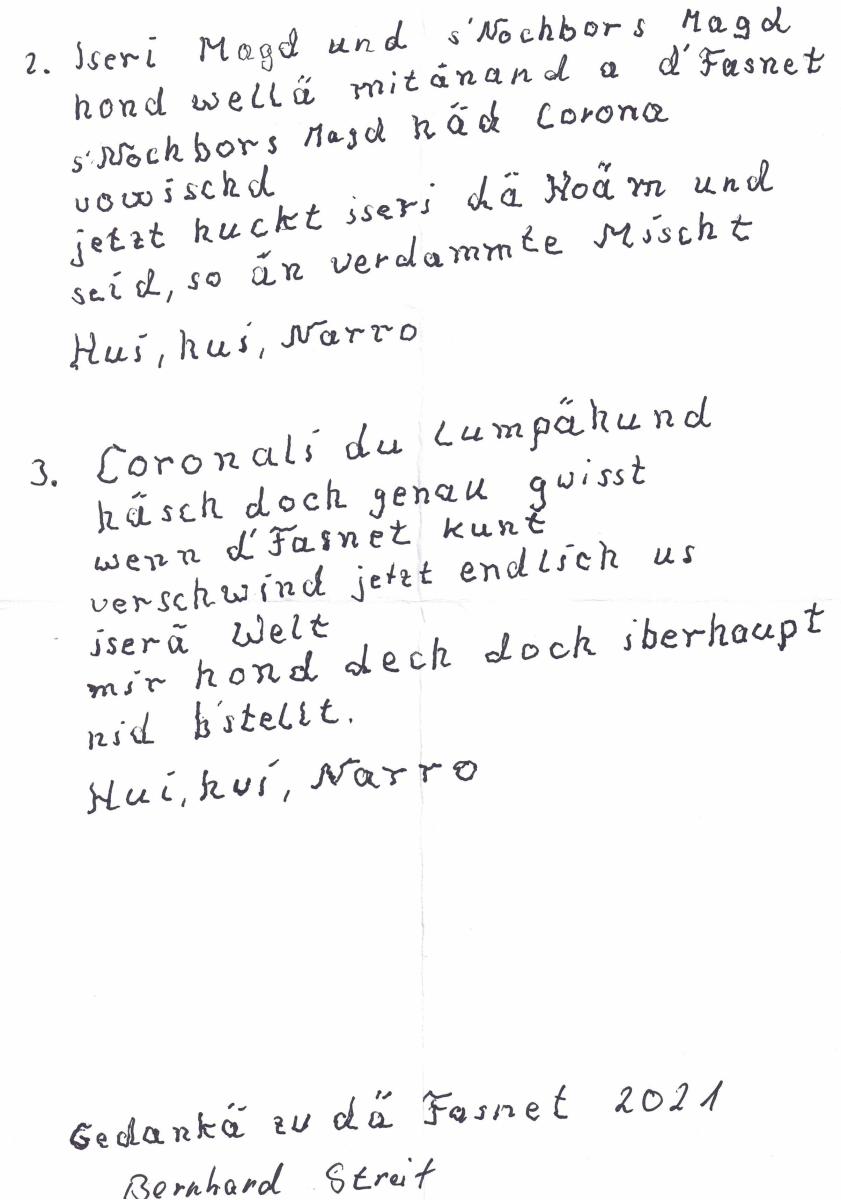 2. Iseri Magd und s'Nochbors Magd
hond wellä mitänand a d'Fasnet
s'Nochbors Magd häd Corona
vowischd
jetzt huckt iseri dä Hoäm und
seid, so än verdammte Mischt
Hui, hui, Narro
3. Coronali du Lumpähund
häsch doch genau gwisst
wenn d'Fasnet kunt
verschwind jetzt endlich us
iserä Welt
mir hond dech doch iberhaupt
nid b'stellt.
Hui, hui, Narro
Gedankä zu dä Fasnet 2021
Bernhard Streit